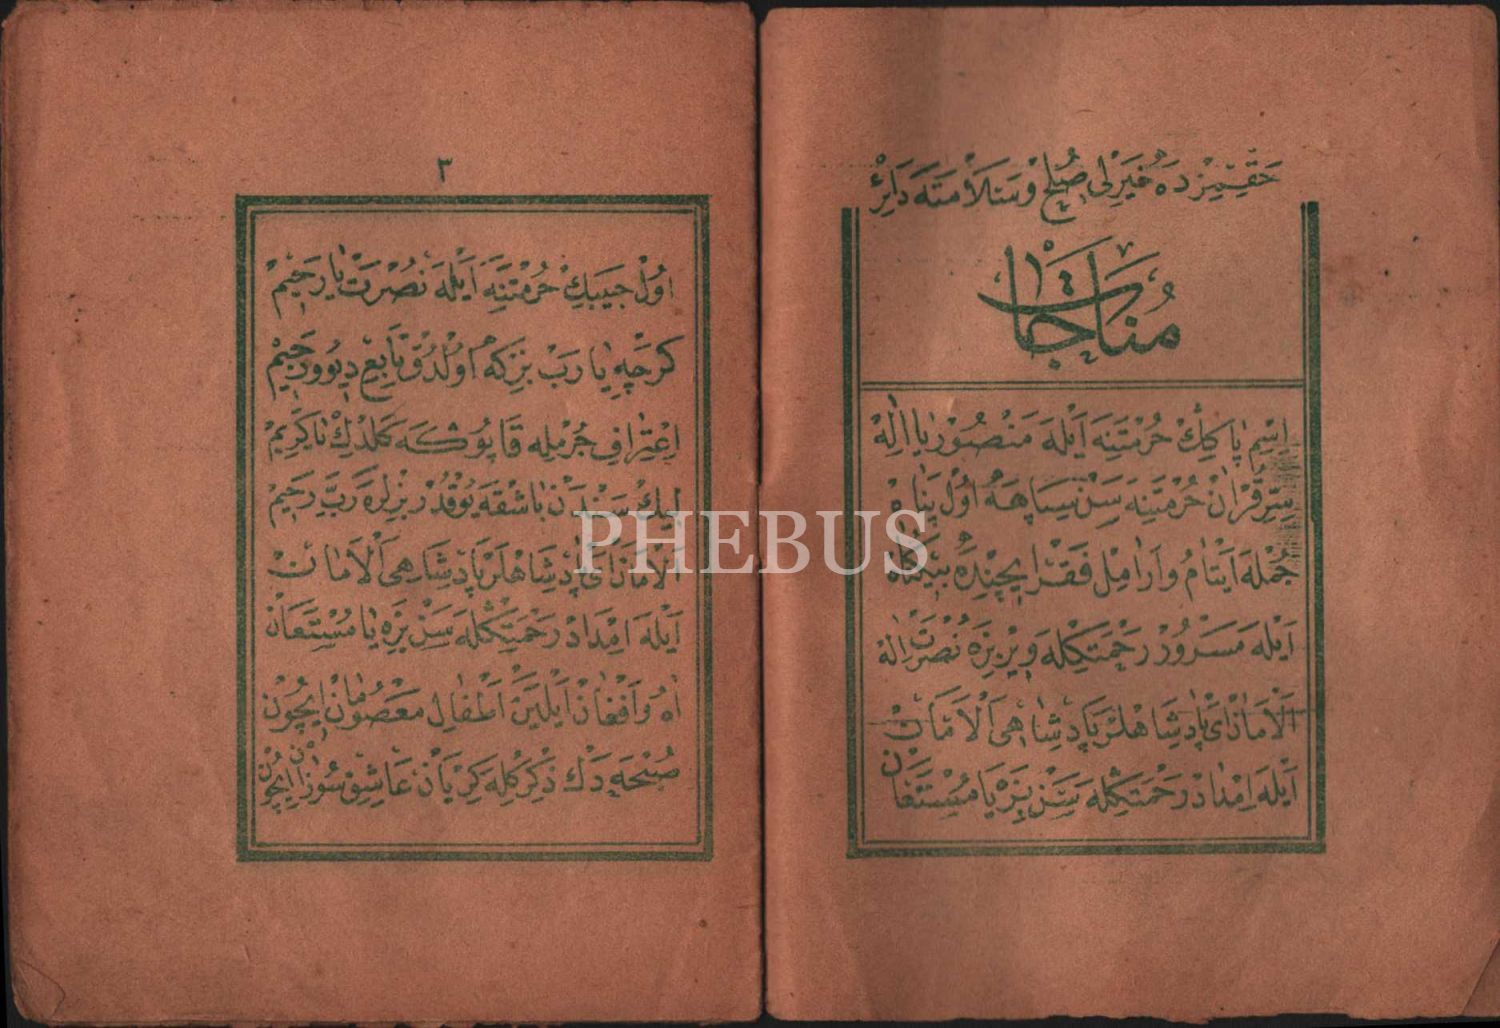 حقمزده خيرلى صلح وسلامته دائر
مناجات
اسم پاكڭ حرمتنه ايله منصور يا اله
سر قرآن حرمتنه سن سپاهه اول پناه
جمله ايتام وارامل فقرا ايچنده بيكناه
ايله مسرور رحمتكله ويربزه نصرت اله
الامان اى پادشاهلر پادشاهى الامان
ايله امداد رحمتكله سن بزه يا مستعان
٣
اول حبيبك حرمتنه ايله نصرت يا رحيم
كرچه يا رب بزكه اولدق تابع ديو رجيم
اعتراف جرمله قاپوكه كلدك يا كريم
ليك سندن باشقه يوقدر بزلره رب رحيم
الامان اى پادشاهلر پادشاهى الامان
ايله امداد رحمتكله سن بزه يا مستعان
آه وافغان ايلين اطفال معصومان ايچون
صبحه دك ذكركله كريان عاشق سوزان ايچون
PHEBUS